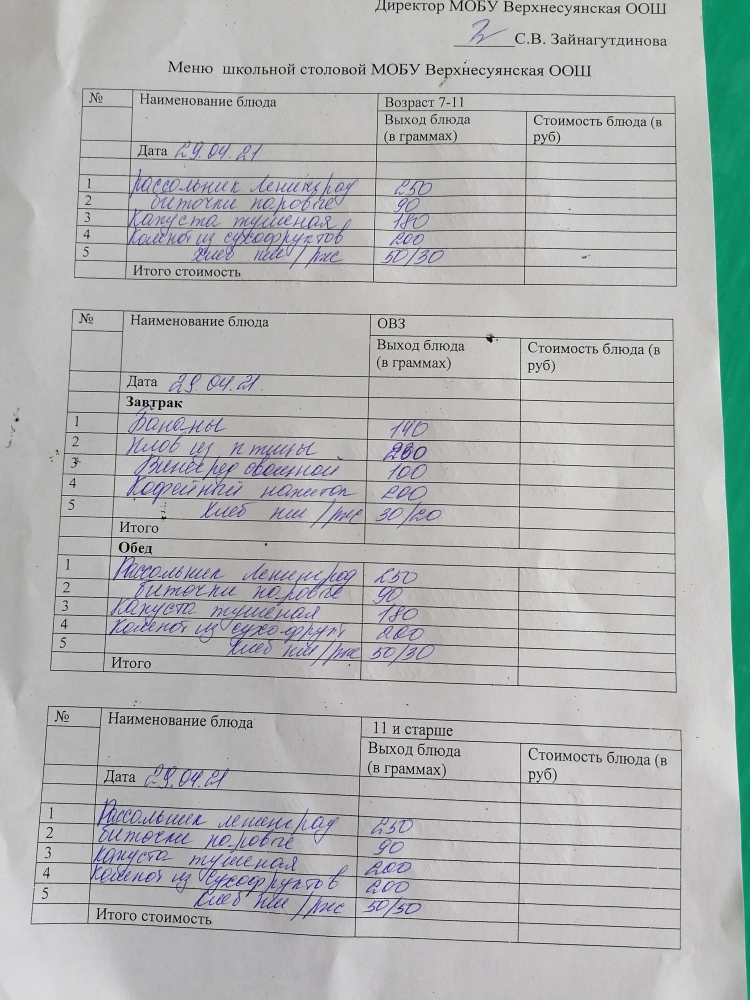 Директор МОБУ Верхнесуянская ООШ
С.В. Зайнагутдинова
Меню школьной столовой МОБУ Верхнесуянская ООШ
№ Наименование блюда Возраст 7-11
Выход блюда (в граммах) Стоимость блюда (в руб)
Дата 29.04.21
1 Рассольник Ленинград 250
2 биточки паровые 90
3 Капуста тушеная 180
4 Компот из сухофруктов 200
5 Хлеб пш/рж 50/30
Итого стоимость
№ Наименование блюда ОВЗ
Выход блюда (в граммах) Стоимость блюда (в руб)
Дата 29.04.21
Завтрак
1 Бананы 140
2 Плов из птицы
3 100
4 Кофейный напиток 200
5 Хлеб пш/рж 30/20
Итого
Обед
1 Рассольник Ленинград 250
2 биточки паровые 90
3 Капуста тушеная 180
4 Компот из сухофрукт 200
5 Хлеб пш/рж 50/30
Итого
№ Наименование блюда 11 и старше
Выход блюда (в граммах) Стоимость блюда (в руб)
Дата 29.04.21
1 Рассольник ленинград 250
2 биточки паровые 90
3 капуста тушеная 200
4 Компот из сухофруктов 200
5 Хлеб пш/рж 50/50
Итого стоимость